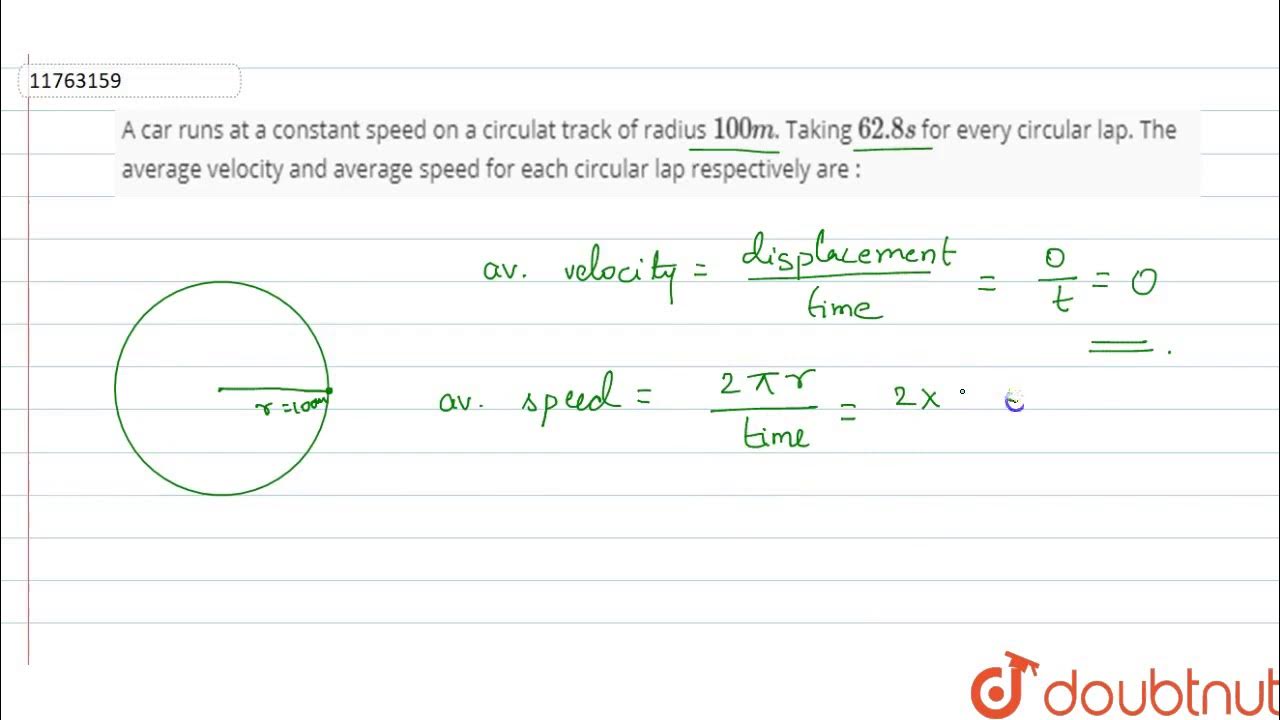 11763159
A car runs at a constant speed on a circulat track of radius 100m. Taking 62.8s for every circular lap. The
average velocity and average speed for each circular lap respectively are :
av. velocity = displacement / time = 0 / t = 0
r=100m
av. speed = 2πr / time = 2x
doubtnut